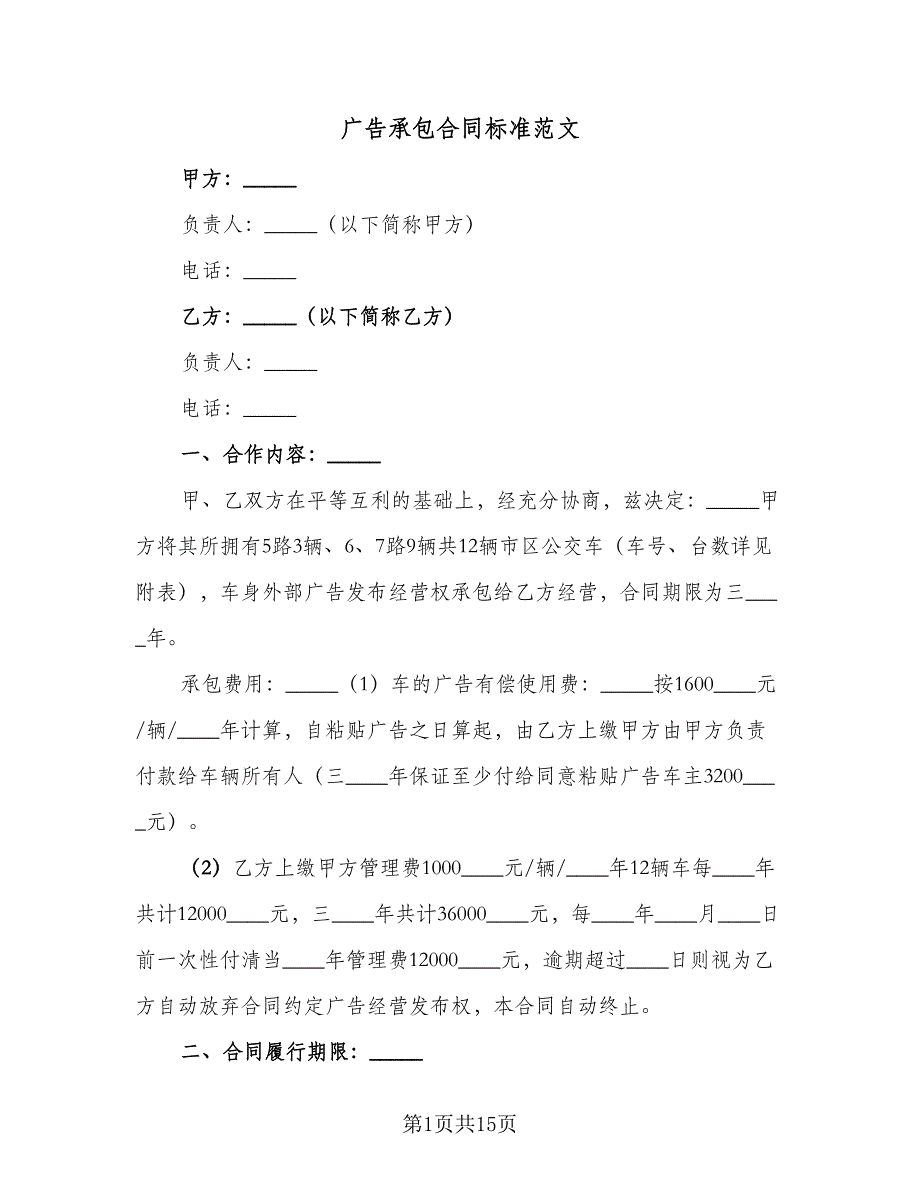 广告承包合同标准范文
甲方：_____
负责人：_____（以下简称甲方）
电话：_____
乙方：_____（以下简称乙方）
负责人：_____
电话：_____
一、合作内容：_____
甲、乙双方在平等互利的基础上，经充分协商，兹决定：_____甲
方将其所拥有5路3辆、6、7路9辆共12辆市区公交车（车号、台数详见
附表），车身外部广告发布经营权承包给乙方经营，合同期限为三___
_年。
承包费用：_____（1）车的广告有偿使用费：_____按1600____元
/辆/____年计算，自粘贴广告之日算起，由乙方上缴甲方由甲方负责
付款给车辆所有人（三____年保证至少付给同意粘贴广告车主3200___
_元）。
（2）乙方上缴甲方管理费1000____元/辆/____年12辆车每____年
共计12000____元，三____年共计36000____元，每____年____月____日
前一次性付清当____年管理费12000____元，逾期超过____日则视为乙
方自动放弃合同约定广告经营发布权，本合同自动终止。
二、合同履行期限：_____
第1页共15页